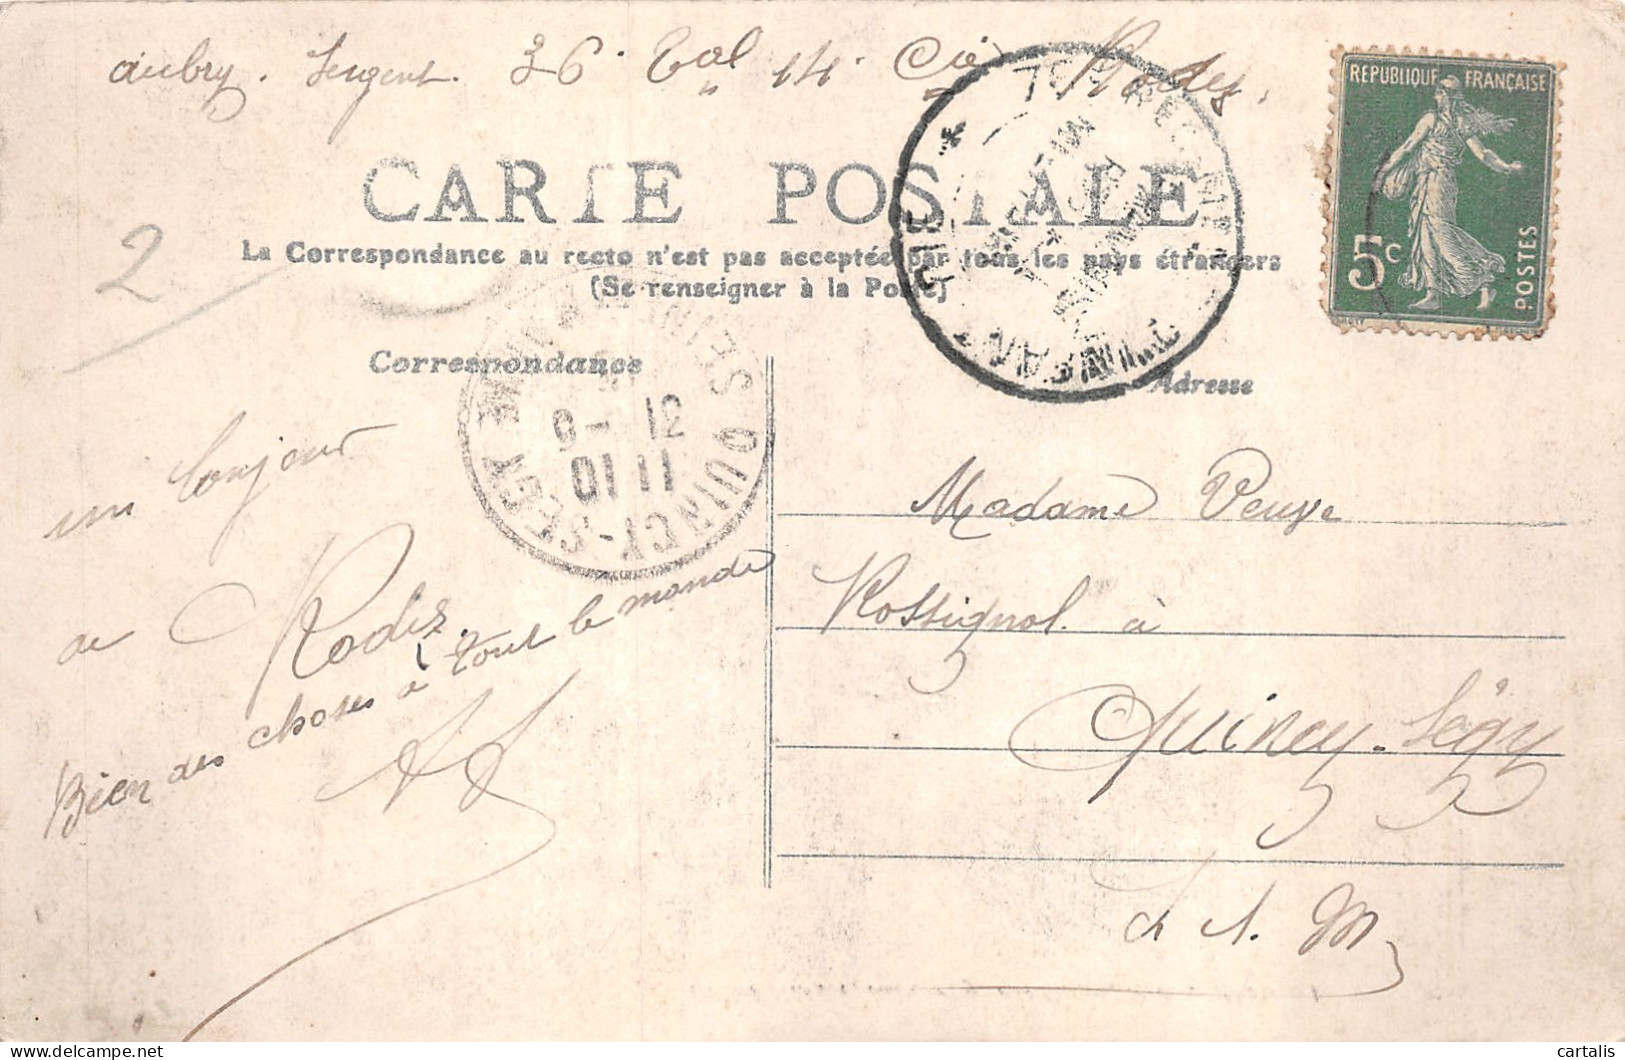 Aubry. Sergent. 36. Bal 14. Cie Rodez.
REPUBLIQUE FRANÇAISE
5c
POSTES
CARTE POSTALE
La Correspondance au recto n'est pas acceptée par tous les pays étrangers
(Se renseigner à la Poste)
2
Correspondance
Adresse
QUINCY-SEGY
SEINE
9-12
un bonjour
de Rodez.
Bien des choses à tout le monde
Madame Veuve
Rossignol à
Quincy-Ségy
S. M.
cartalis